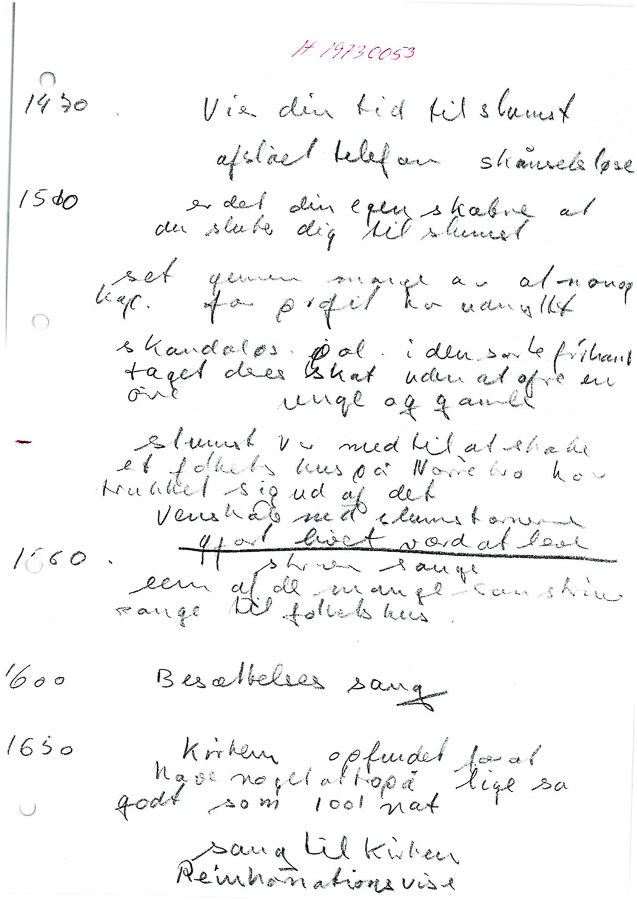 H 1973 0053
1430 . Vier din tid til slumst
afslået telefon skånselsløse
1500 er det din egen skæbne at
du sluter dig til slumst
set gennem mange av at
kap. for profit har udnyttet
skandaløs. pol. i den sorte
taget deres skat uden at ofre en
øre unge og gamle
slumst var med til at skabe
et folkets hus på Nørrebro har
trukket sig ud af det
Venskab med slumstormerne
gjort livet værd at leve
1560 . skriver sange
een af de mange
sange til folkets hus.
1600 Besættelses sang
1650 Kirken opfundet for at
have noget at tro på lige så
godt som 1001 nat
sang til Kirken
Reinkanationsvise